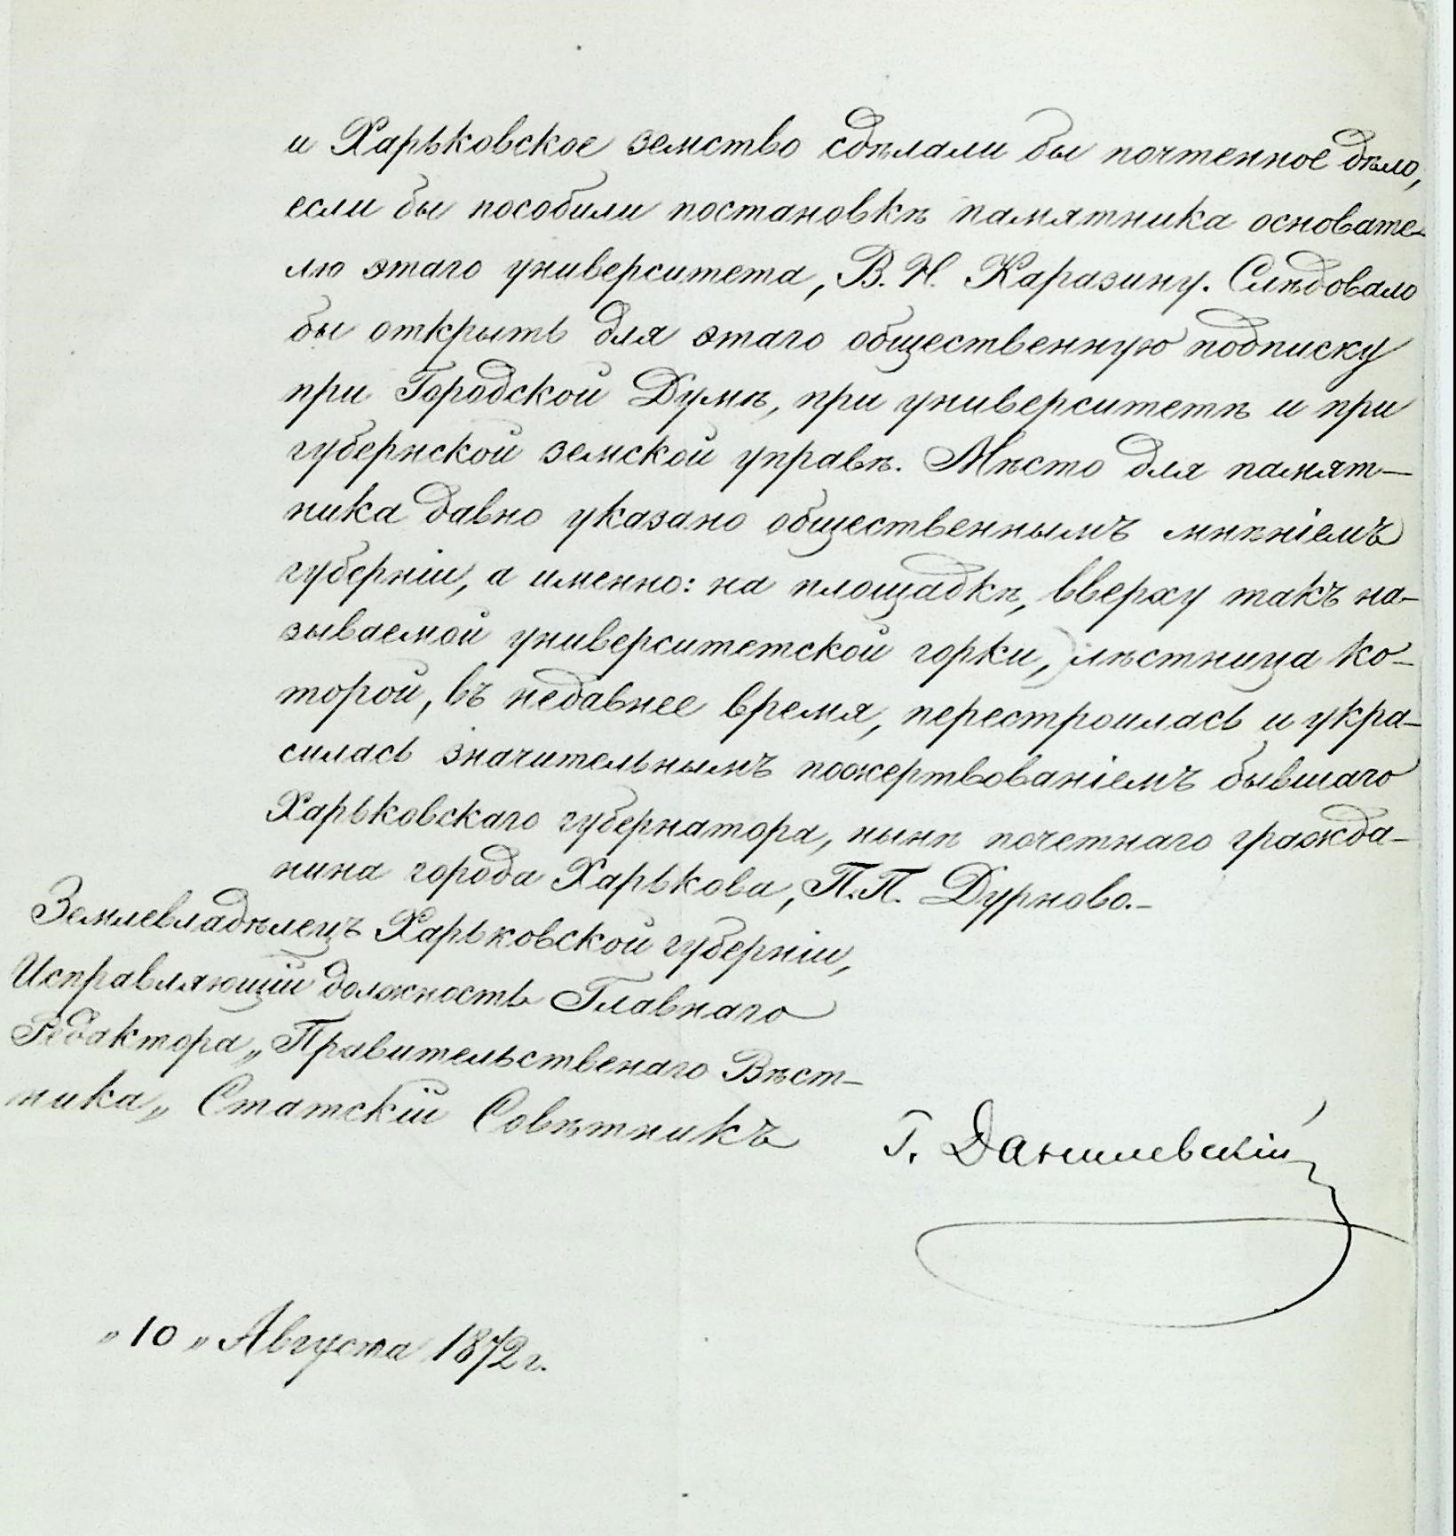 и Харьковское земство сдѣлали бы почтенное дѣло,
если бы пособили постановкѣ памятника основате-
лю этаго университета, В. Н. Каразину. Слѣдовало
бы открыть для этаго общественную подписку
при Городской Думѣ, при университетѣ и при
губернской земской управѣ. Мѣсто для памят-
ника давно указано общественнымъ мнѣніемъ
губерніи, а именно: на площадкѣ, вверху такъ на-
зываемой университетской горки, лѣстница ко-
торой, въ недавнее время, перестроилась и укра-
силась значительнымъ пожертвованіемъ бывшаго
Харьковскаго губернатора, нынѣ почетнаго гражда-
нина города Харькова, П. П. Дурново.-
Землевладѣлецъ Харьковской губерніи,
Исправляющій должность Главнаго
Редактора „Правительственаго Вѣст-
ника„ Статскій Совѣтникъ
Г. Данилевскій
„10„ Августа 1872 г.